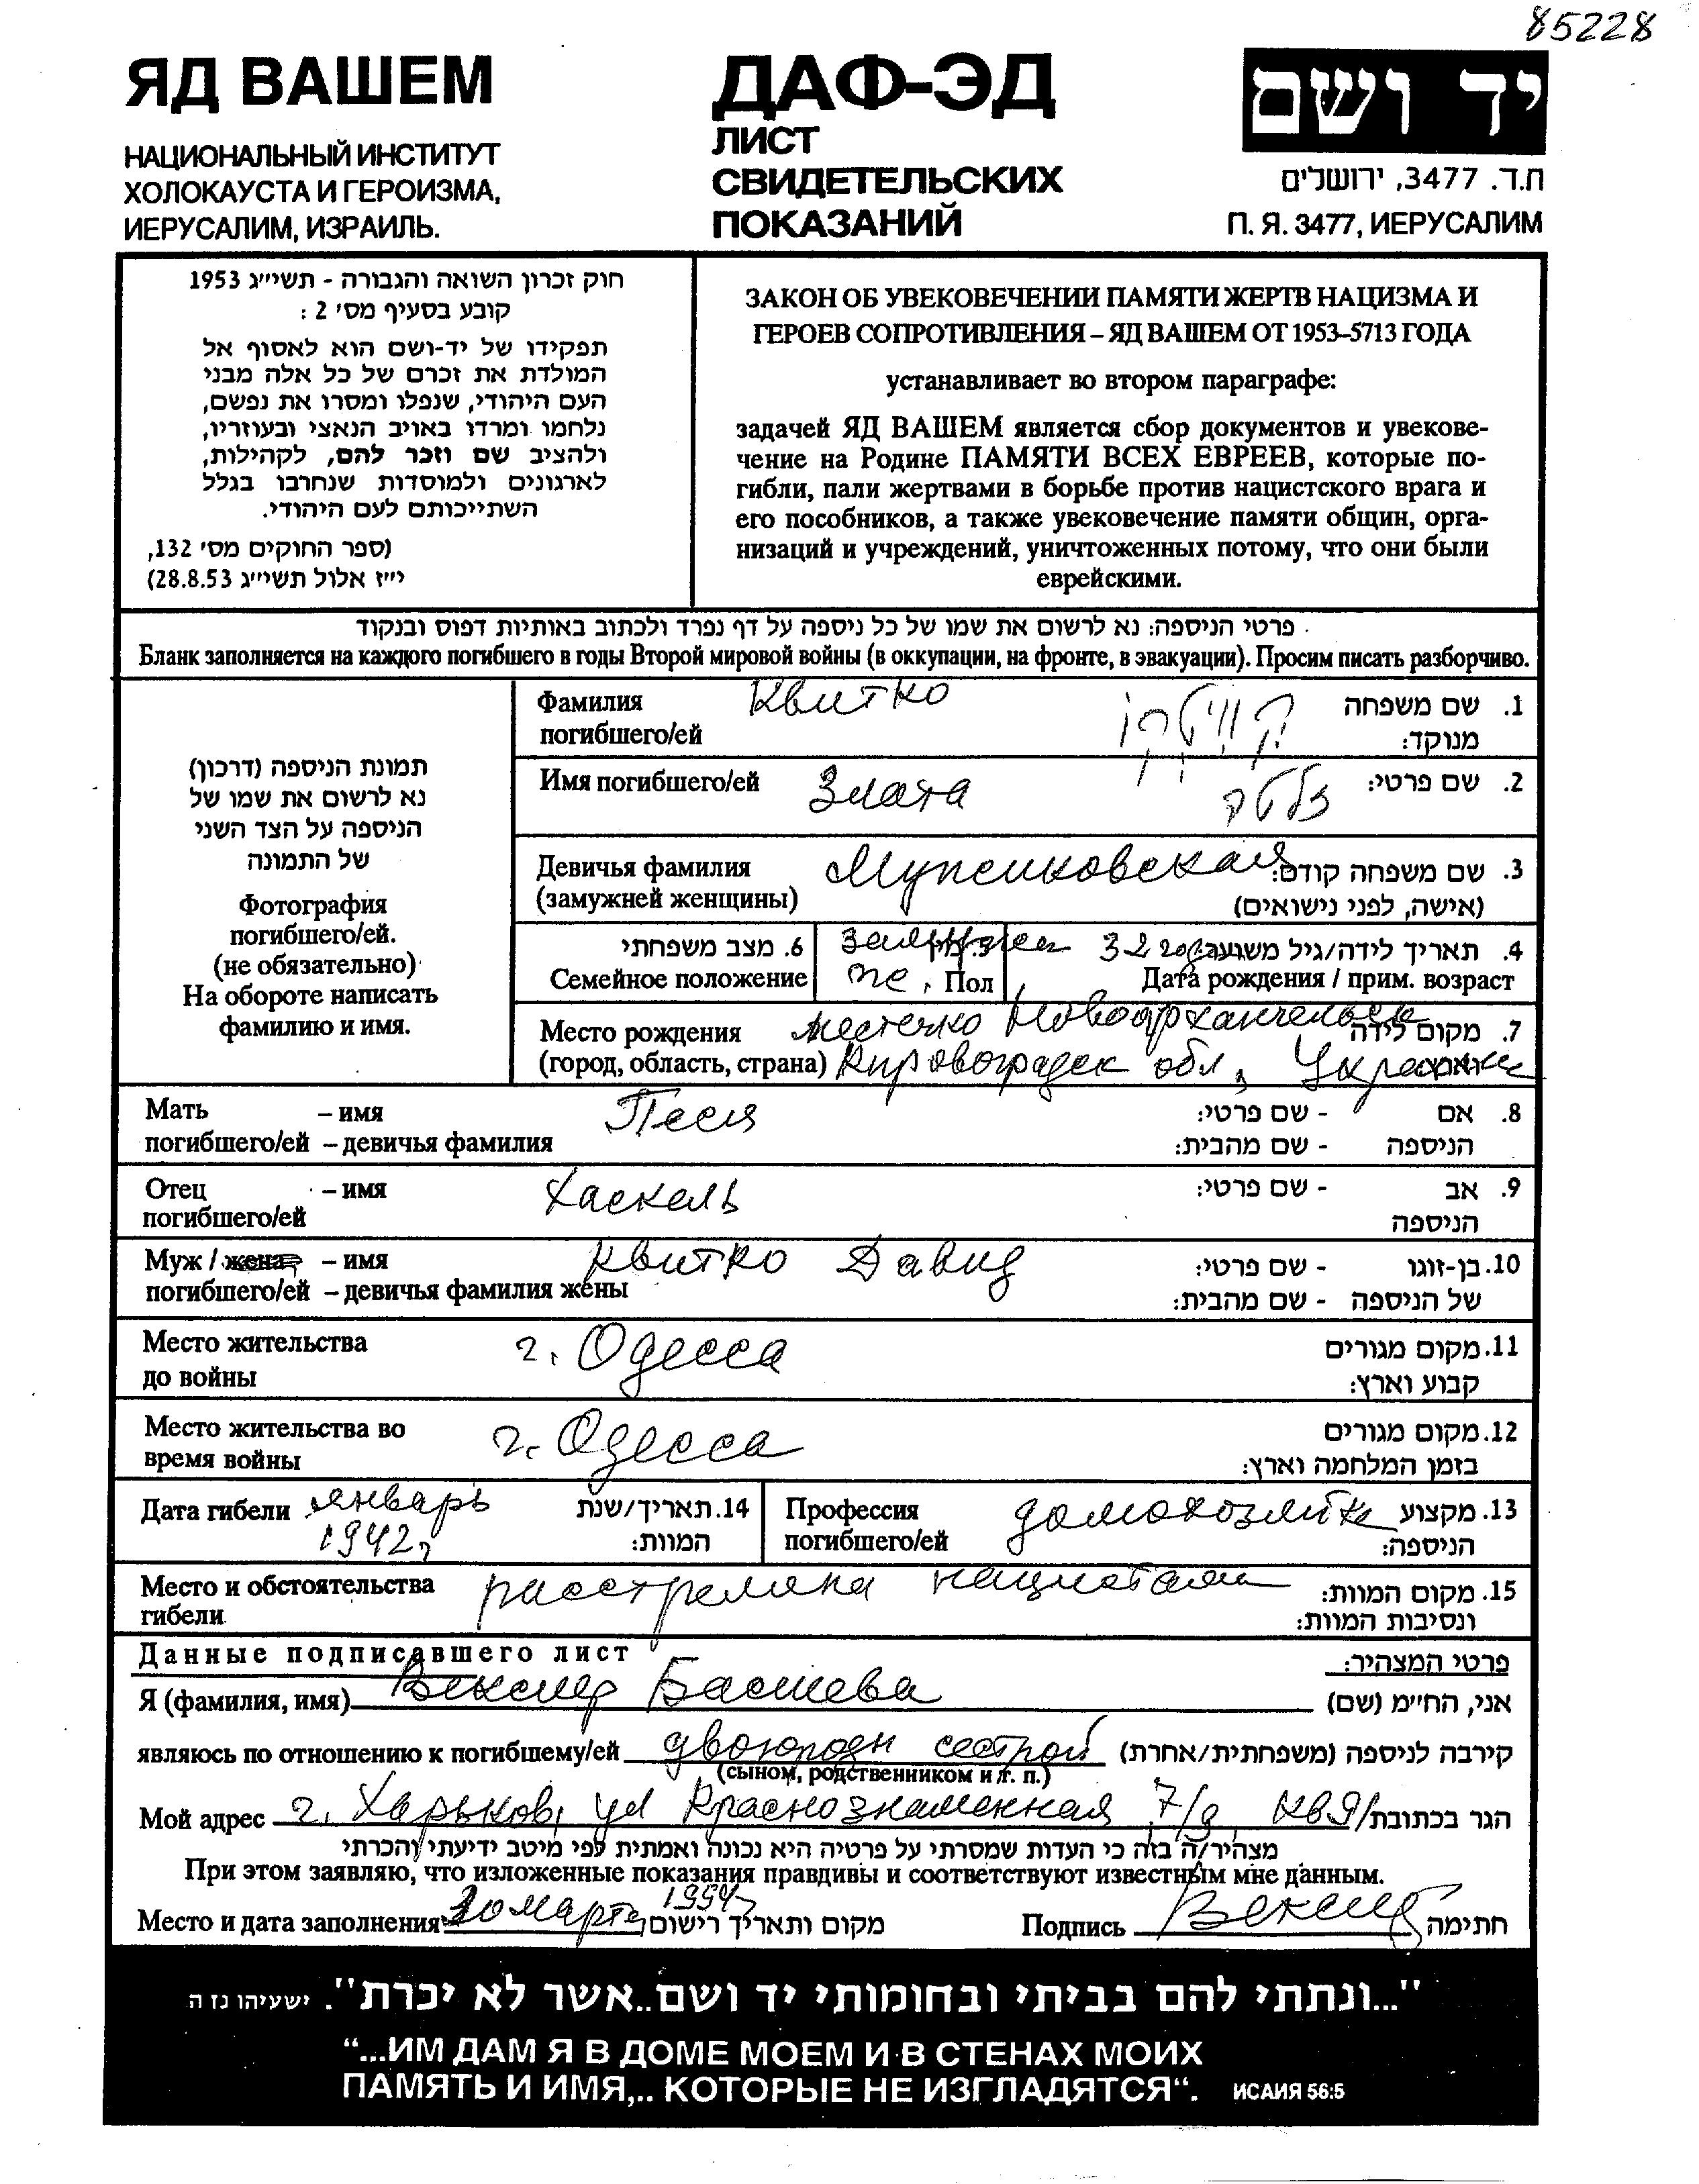 85228
ЯД ВАШЕМ
НАЦИОНАЛЬНЫЙ ИНСТИТУТ
ХОЛОКАУСТА И ГЕРОИЗМА,
ИЕРУСАЛИМ, ИЗРАИЛЬ.
ДАФ-ЭД
ЛИСТ
СВИДЕТЕЛЬСКИХ
ПОКАЗАНИЙ
יד ושם
ת.ד. 3477, ירושלים
П. Я. 3477, ИЕРУСАЛИМ
חוק זכרון השואה והגבורה - תשי״ג 1953
קובע בסעיף מס׳ 2 :
תפקידו של יד-ושם הוא לאסוף אל
המולדת את זכרם של כל אלה מבני
העם היהודי, שנפלו ומסרו את נפשם,
נלחמו ומרדו באויב הנאצי ובעוזריו,
ולהציב שם וזכר להם, לקהילות,
לארגונים ולמוסדות שנחרבו בגלל
השתייכותם לעם היהודי.
(ספר החוקים מס׳ 132,
י״ז אלול תשי״ג 28.8.53)
ЗАКОН ОБ УВЕКОВЕЧЕНИИ ПАМЯТИ ЖЕРТВ НАЦИЗМА И
ГЕРОЕВ СОПРОТИВЛЕНИЯ – ЯД ВАШЕМ ОТ 1953–5713 ГОДА
устанавливает во втором параграфе:
задачей ЯД ВАШЕМ является сбор документов и увекове-
чение на Родине ПАМЯТИ ВСЕХ ЕВРЕЕВ, которые по-
гибли, пали жертвами в борьбе против нацистского врага и
его пособников, а также увековечение памяти общин, орга-
низаций и учреждений, уничтоженных потому, что они были
еврейскими.
פרטי הניספה: נא לרשום את שמו של כל ניספה על דף נפרד ולכתוב באותיות דפוס ובנקוד
Бланк заполняется на каждого погибшего в годы Второй мировой войны (в оккупации, на фронте, в эвакуации). Просим писать разборчиво.
תמונת הניספה (דרכון)
נא לרשום את שמו של
הניספה על הצד השני
של התמונה
Фотография
погибшего/ей.
(не обязательно)
На обороте написать
фамилию и имя.
Фамилия Квитко קוויטקו 1. שם משפחה
погибшего/ей מנוקד:
Имя погибшего/ей Злата זלטה 2. שם פרטי:
Девичья фамилия 3. שם משפחה קודם:
(замужней женщины) (אישה, לפני נישואים)
6. מצב משפחתי замужем 32 года 4. תאריך לידה/גיל משוער
Семейное положение Пол Дата рождения / прим. возраст
Место рождения местечко Новоархангельск 7. מקום לידה
(город, область, страна) Кировоградск обл, Украина
Мать – имя Песя 8. אם - שם פרטי:
погибшего/ей – девичья фамилия הניספה - שם מהבית:
Отец – имя Хаскель 9. אב - שם פרטי:
погибшего/ей הניספה
Муж / жена – имя Квитко Давид 10. בן-זוגו - שם פרטי:
погибшего/ей – девичья фамилия жены של הניספה - שם מהבית:
Место жительства г. Одесса 11. מקום מגורים
до войны קבוע וארץ:
Место жительства во г. Одесса 12. מקום מגורים
время войны בזמן המלחמה וארץ:
Дата гибели январь 14. תאריך/שנת Профессия домохозяйка 13. מקצוע
1942г המוות: погибшего/ей הניספה:
Место и обстоятельства расстреляна нацистами 15. מקום המוות:
гибели ונסיבות המוות:
Данные подписавшего лист פרטי המצהיר:
Я (фамилия, имя) Векслер Басшева אני, הח״מ (שם)
являюсь по отношению к погибшему/ей двоюродн сестрой קירבה לניספה (משפחתית/אחרת)
(сыном, родственником и т. п.)
Мой адрес г. Харьков, ул Краснознаменная 7/9, кв 9 הגר בכתובת
מצהיר/ה בזה כי העדות שמסרתי על פרטיה היא נכונה ואמתית לפי מיטב ידיעתי והכרתי
При этом заявляю, что изложенные показания правдивы и соответствуют известным мне данным.
Место и дата заполнения 20 марта 1994г מקום ותאריך רישום Подпись Векслер חתימה
"...ונתתי להם בביתי ובחומותי יד ושם..אשר לא יכרת". ישעיהו נז ה
“...ИМ ДАМ Я В ДОМЕ МОЕМ И В СТЕНАХ МОИХ
ПАМЯТЬ И ИМЯ,.. КОТОРЫЕ НЕ ИЗГЛАДЯТСЯ“. ИСАИЯ 56:5